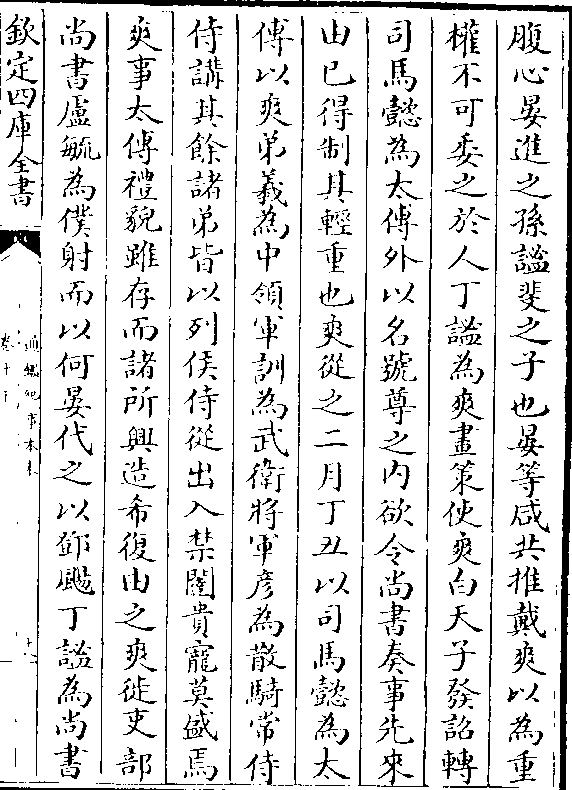 腹心晏進之孫謐斐之子也晏等咸共推戴爽以為重
權不可委之於人丁謐為爽畫策使爽白天子發詔轉
司馬懿為太傅外以名號尊之内欲令尚書奏事先來
由已得制其輕重也爽從之二月丁丑以司馬懿為太
傅以爽弟羲為中領軍訓為武衛將軍彦為散騎常侍
侍講其餘諸弟皆以列侯侍從出入禁闥貴寵莫盛焉
爽事太傅禮貌雖存而諸所興造希復由之爽徙吏部
尚書盧毓為僕射而以何晏代之以鄧颺丁謐為尚書
欽定四庫全書
通鑑紀事本末